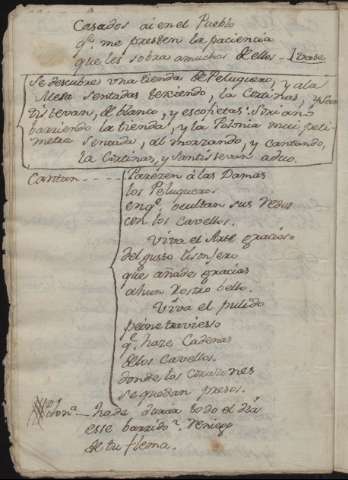 Casados ai en el Pueblo
q.e me presten la paciencia
que les sobra a muchos de ellos - Vase
Se descubre una tienda de Peluquero, y a la
Mesa Sentadas texiendo, la Cortinas, y San
tistevan, de blanco, y escofietas: Soriano
barriendo la tienda, y la Polonia mui peti
metra Sentada, almorzando, y Cantando,
la Cortinas, y Santistevan a duo.
Cantan - - - Parezen á las Damas
los Peluqueros
en q.e ocultan sus
con los Cavellos.
Viva el Arte gracioso
del gusto lisonjero
que añade gracias
a un Rostro bello.
Viva el pulido
peine travieso
q.e haze Cadenas
de los Cavellos.
donde los Corazones
se quedan presos.
Polon.a - ha de durar todo el dia
ese barrido? Reniego
de tu flema.